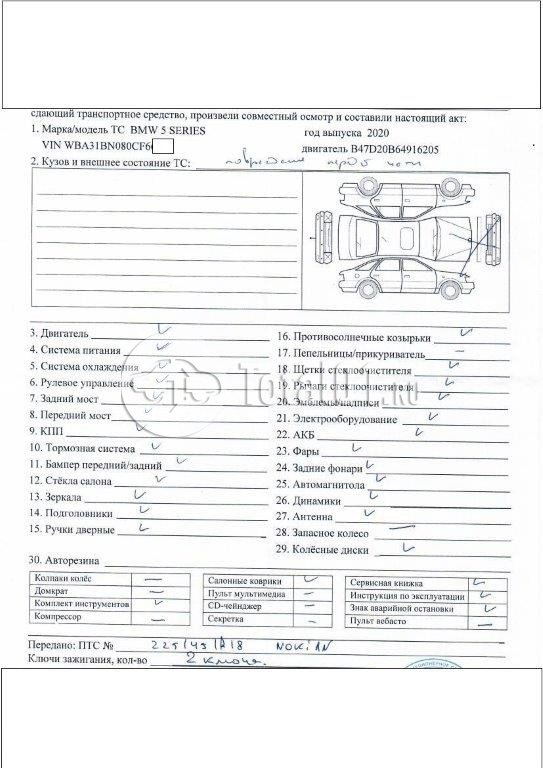 сдающий транспортное средство, произвели совместный осмотр и составили настоящий акт:
1. Марка/модель ТС BMW 5 SERIES год выпуска 2020
VIN WBA31BN080CF6 двигатель B47D20B64916205
2. Кузов и внешнее состояние ТС: части
3. Двигатель ✓
4. Система питания ✓
5. Система охлаждения ✓
6. Рулевое управление ✓
7. Задний мост ✓
8. Передний мост ✓
9. КПП ✓
10. Тормозная система ✓
11. Бампер передний/задний ✓
12. Стёкла салона ✓
13. Зеркала ✓
14. Подголовники ✓
15. Ручки дверные ✓
16. Противосолнечные козырьки ✓
17. Пепельницы/прикуриватель —
18. Щетки стеклоочистителя ✓
19. Рычаги стеклоочистителя ✓
20. Эмблемы/надписи ✓
21. Электрооборудование ✓
22. АКБ ✓
23. Фары ✓
24. Задние фонари ✓
25. Автомагнитола ✓
26. Динамики ✓
27. Антенна ✓
28. Запасное колесо —
29. Колёсные диски ✓
30. Авторезина
Колпаки колёс —
Домкрат —
Комплект инструментов ✓
Компрессор —
Салонные коврики ✓
Пульт мультимедиа —
CD-чейнджер —
Секретка —
Сервисная книжка ✓
Инструкция по эксплуатации ✓
Знак аварийной остановки ✓
Пульт вебасто —
Передано: ПТС № 225/45/R18 NOKIAN
Ключи зажигания, кол-во 2 ключа.